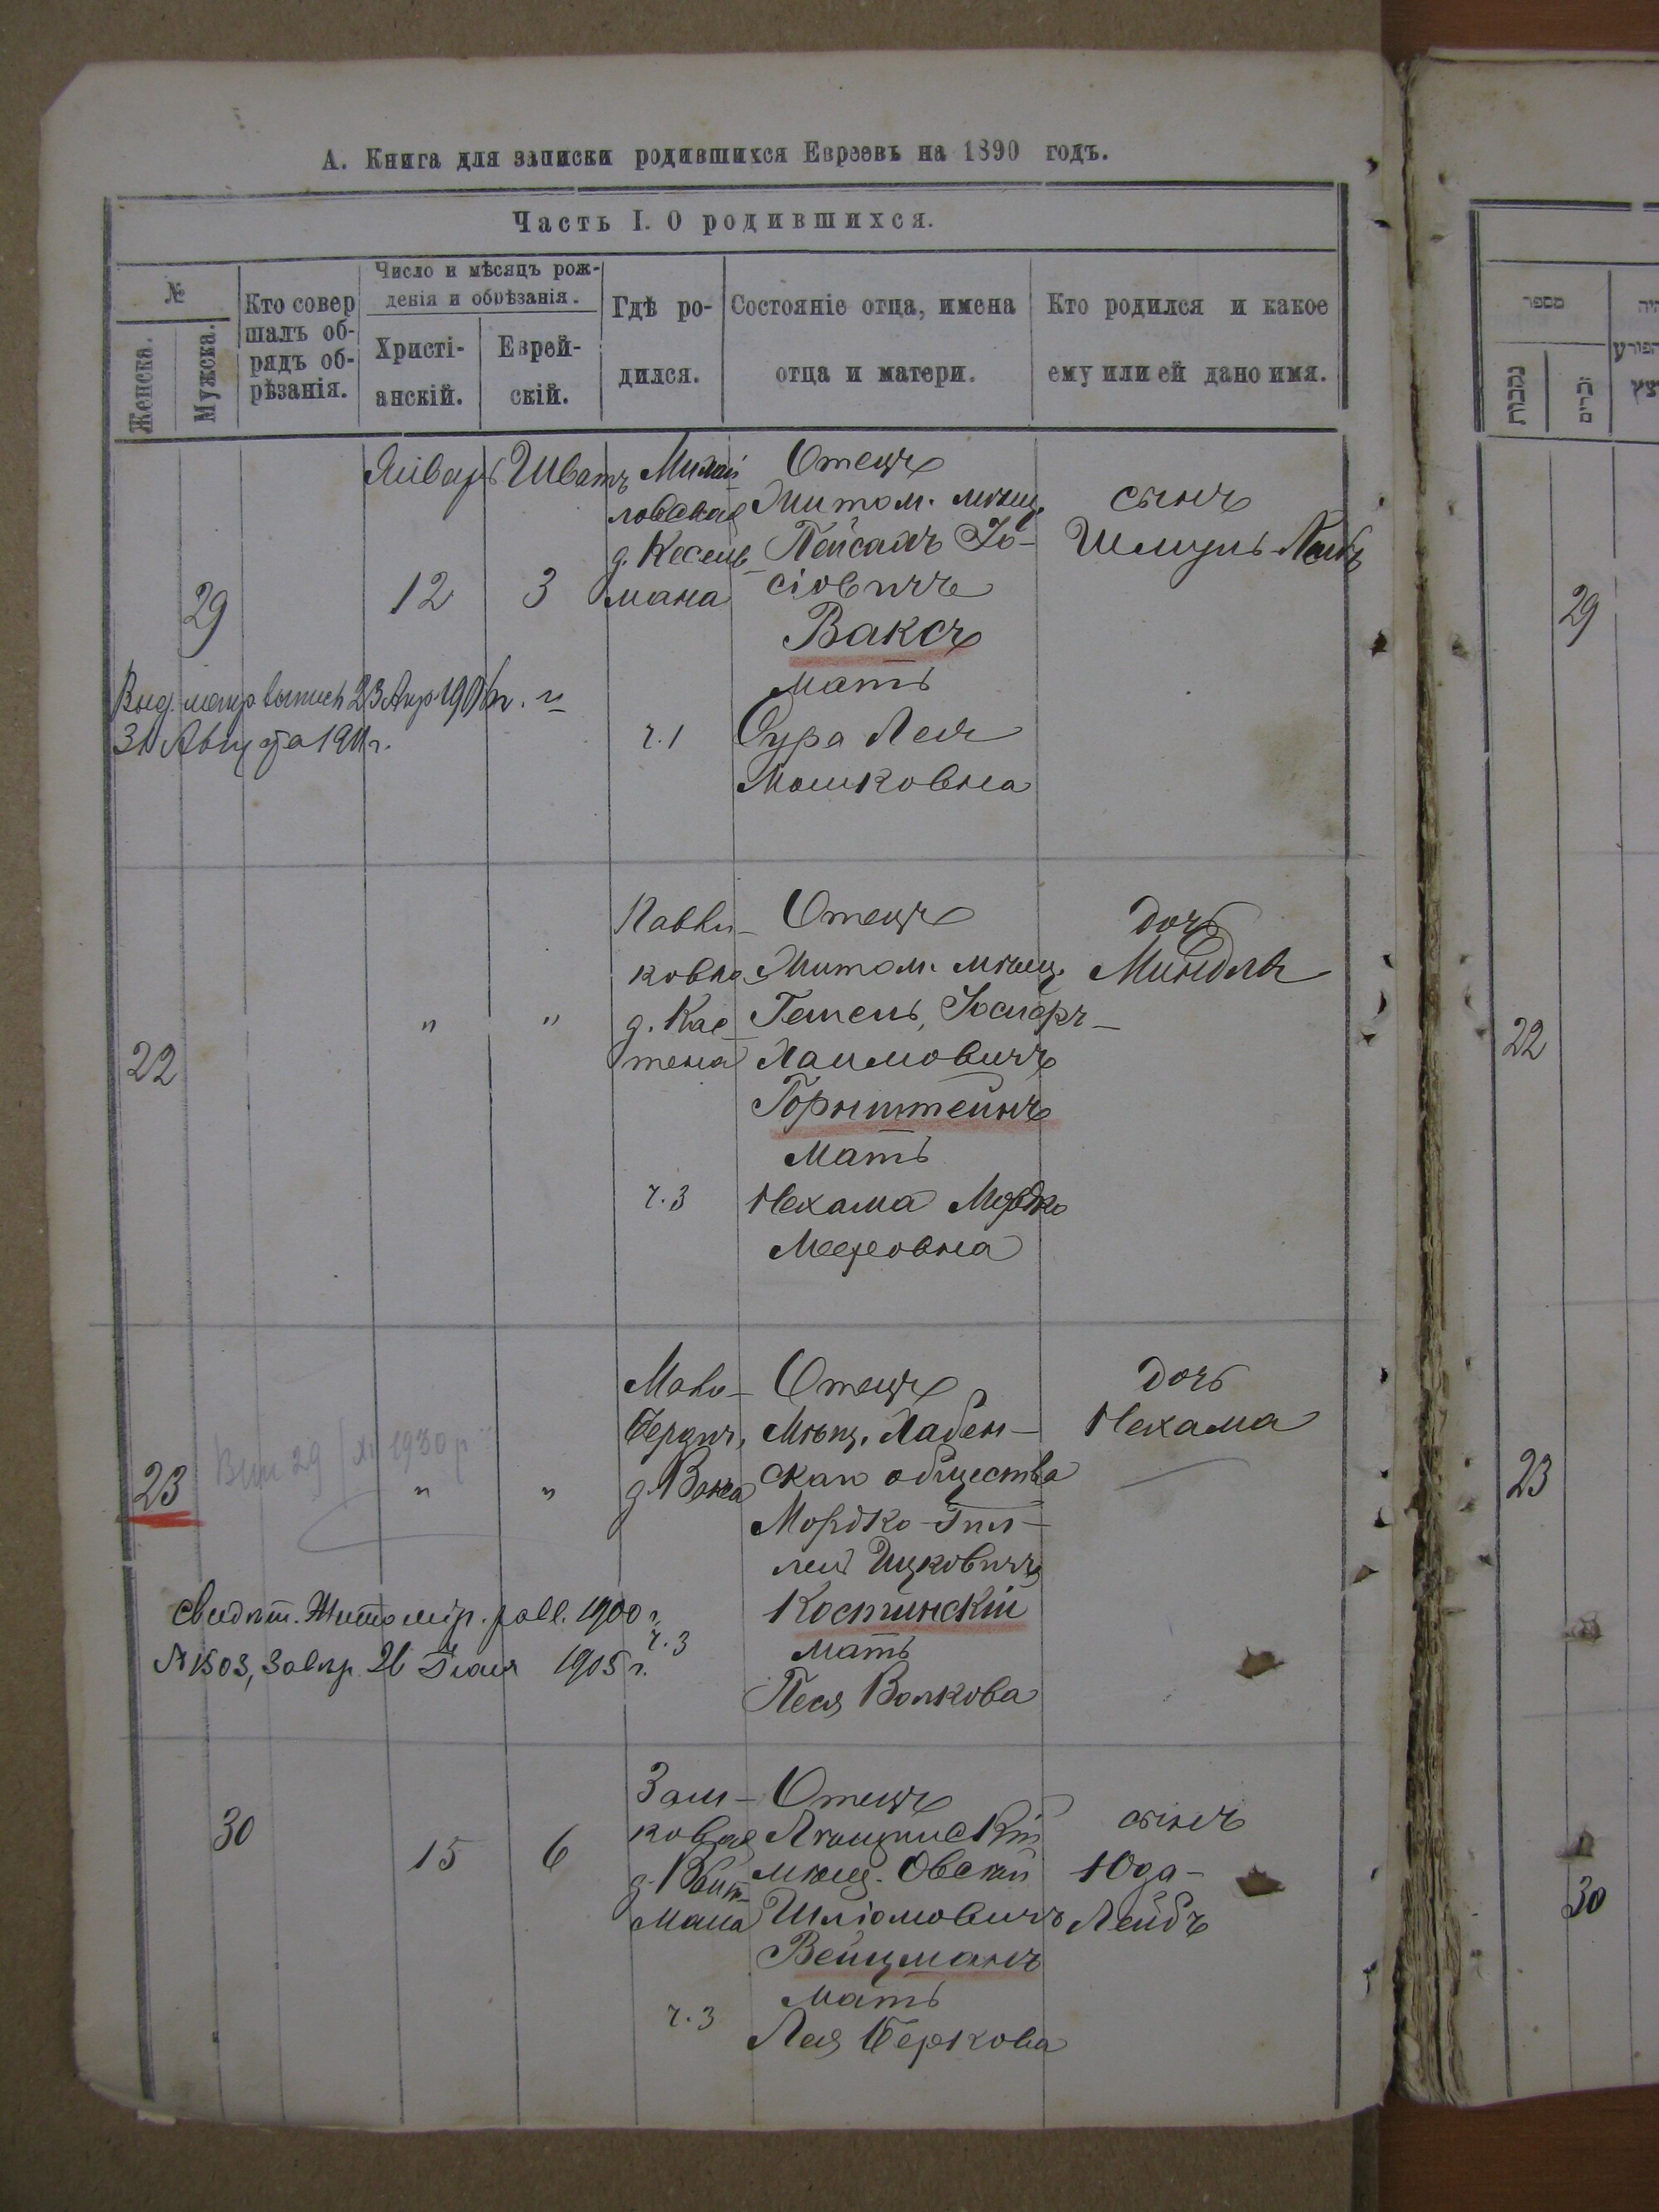 А. Книга для записки родившихся Евреевъ на 1890 годъ.
Часть I. О родившихся.
№
Женска.
Мужска.
Кто совер
шалъ об-
рядъ об-
рѣзанія.
Число и мѣсяцъ рож-
денія и обрѣзанія.
Христі-
анскій.
Еврей-
скій.
Гдѣ ро-
дился.
Состояніе отца, имена
отца и матери.
Кто родился и какое
ему или ей дано имя.
29
Январь
12
Шватъ
3
Михай
ловская
д. Кесель
мана
ч. 1
Отецъ
Житом. мѣщ.
Пейсахъ Іо-
сіовичъ
Ваксъ
мать
Сура Лея
Мошковна
сынъ
Шмуль-Лейб
Выд. метр выпись 23 Апр 190 г. и
31 Августа 1911 г.
22
"
"
ковка
д. Кас
тена
ч. 3
Отецъ
Житом. мѣщ.
Хаимовичъ
Горнштейнъ
Мать
Нехама Мордко
Мееровна
дочь
Миндля
23
"
"
Мало-
Бердич.
д. Вакса
ч. 3
Отецъ
Мѣщ. Лабен-
скаго общества
Мордко-Гил-
лель Ицковичъ
Костинскій
мать
Песя Волкова
дочь
Нехама
29 / XI 1930 р
Свидѣт. Житомір. равв. 1900 г.
№ 1503, завѣр. 21 Іюля 1905 г.
30
15
6
Зам-
ковая
д. Вайт-
мана
ч. 3
Отецъ
мѣщ. Овсей
Шліомовичъ
Вейцманъ
мать
Лея Беркова
сынъ
Юда-
Лейбъ
מספר
נקבות
זכרים
29
22
23
30